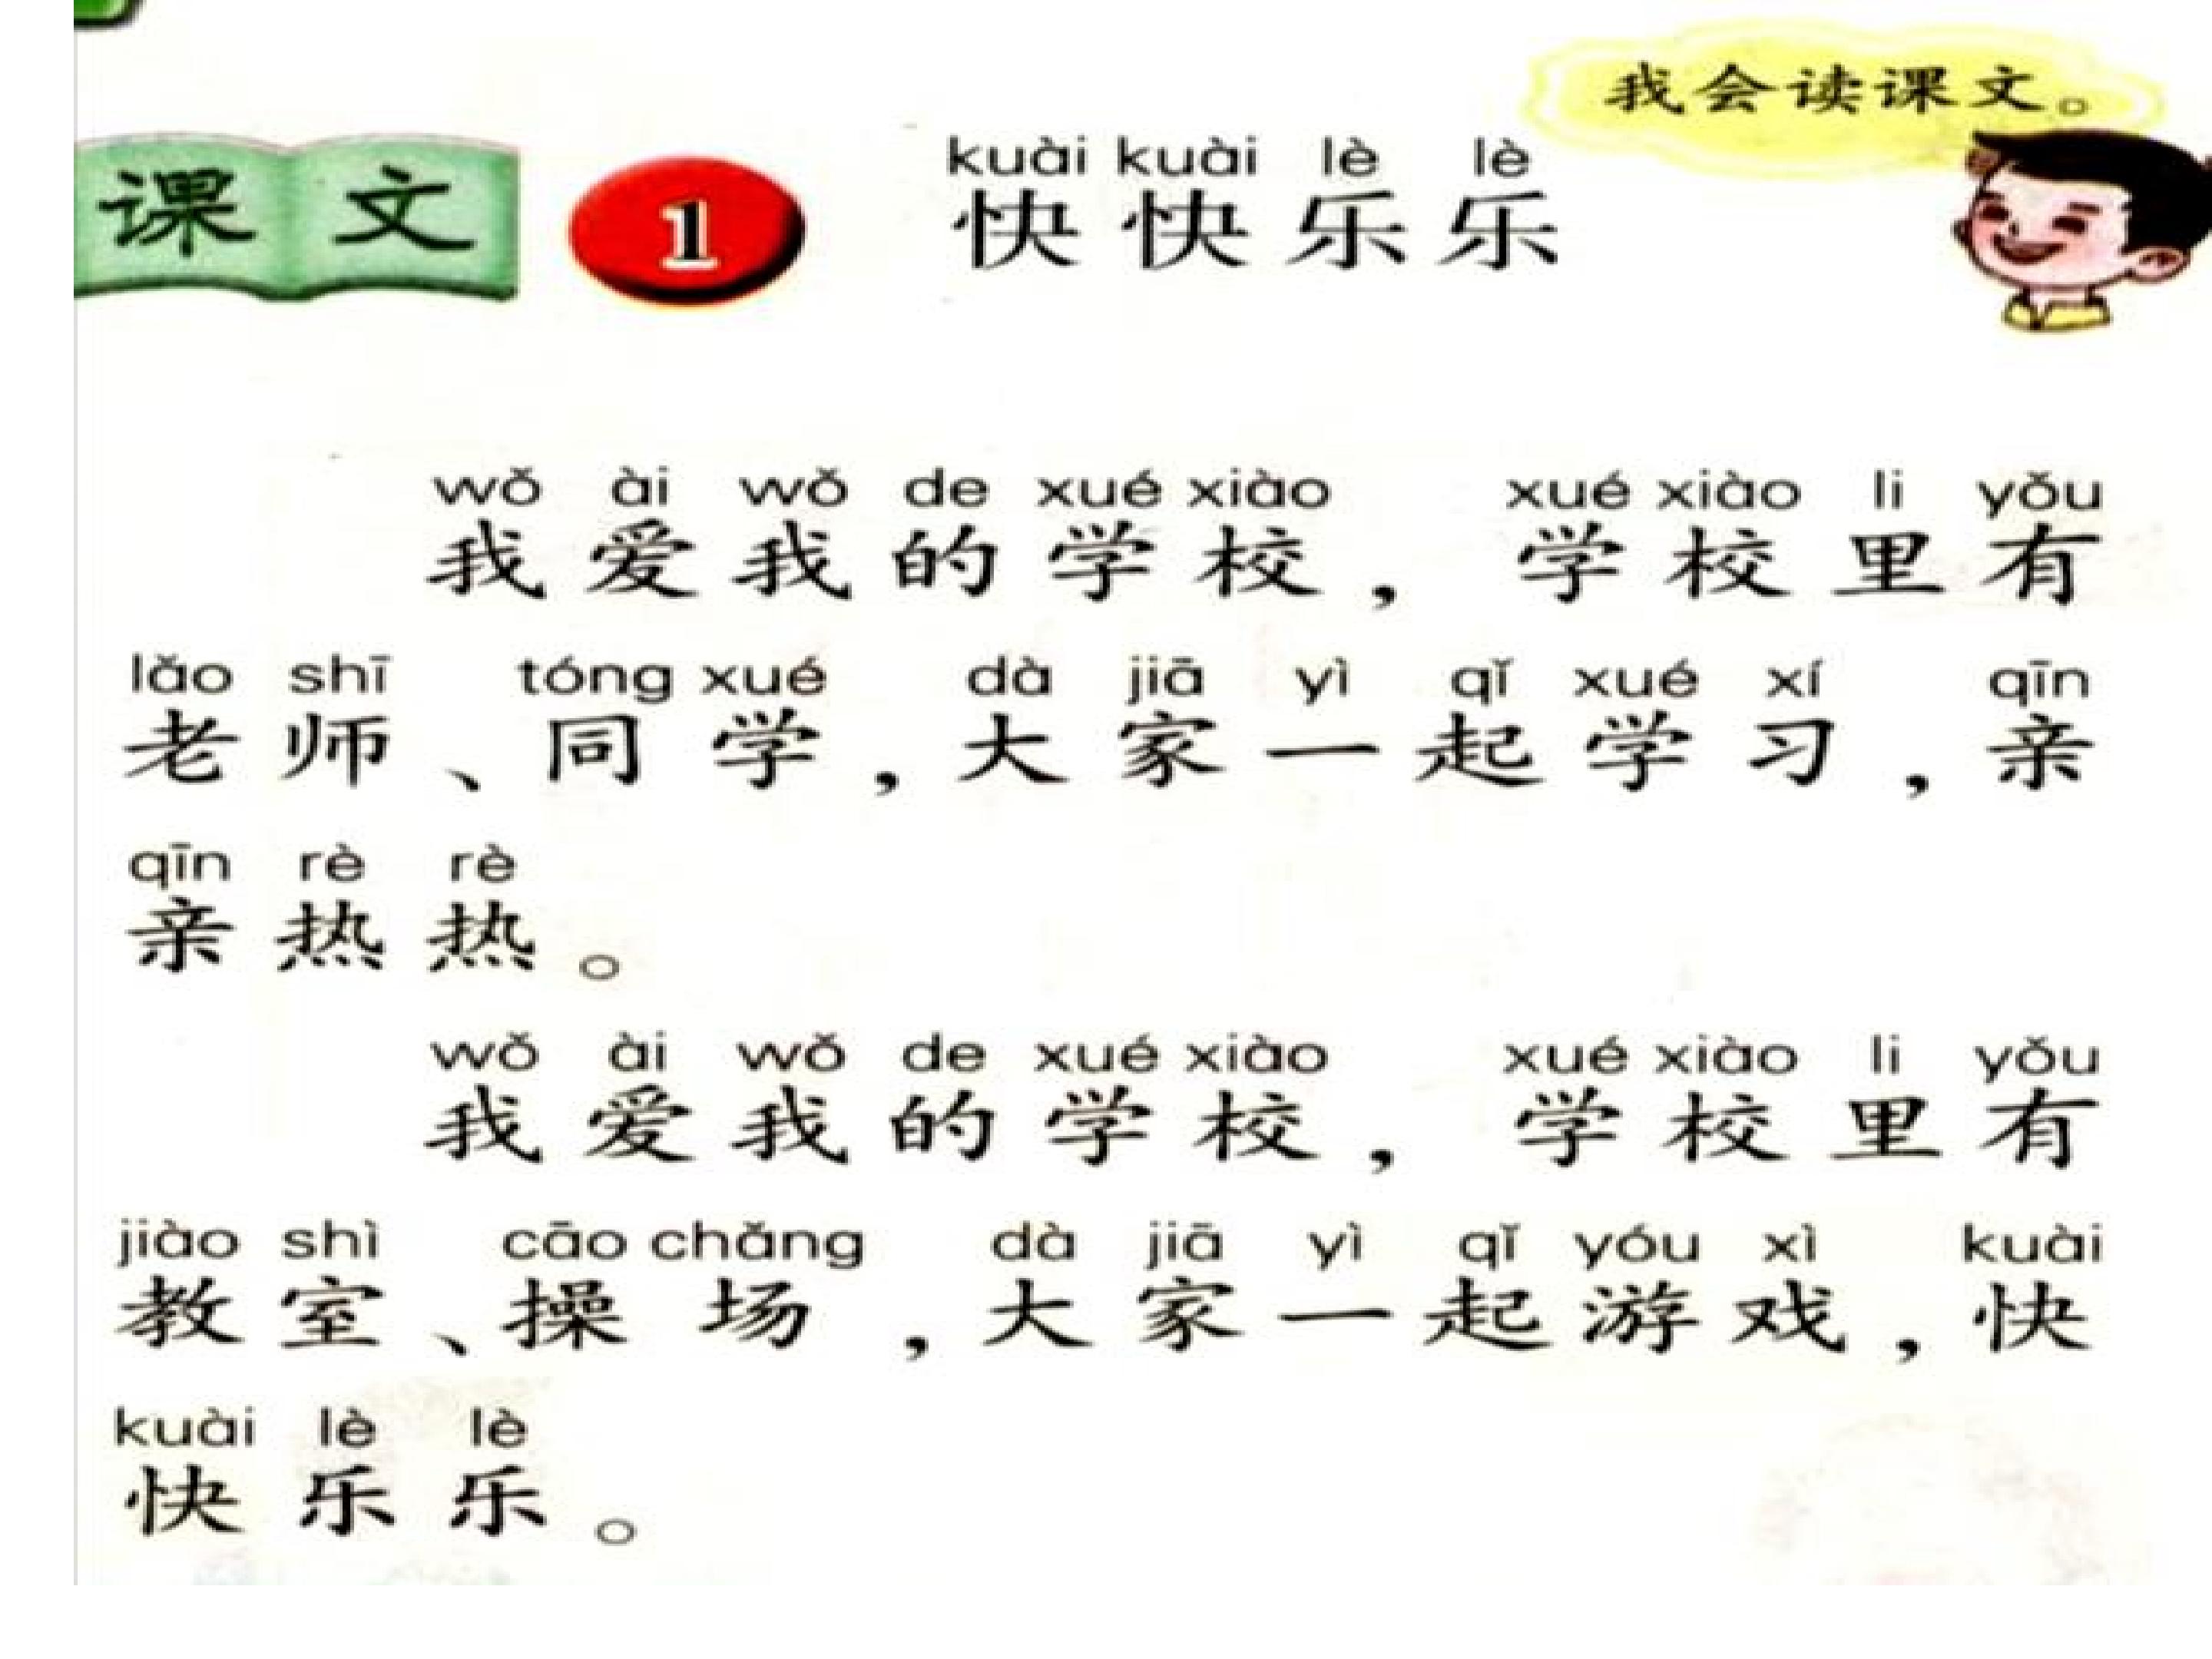 我会读课文。
课文 1
kuài kuài lè lè
快快乐乐
wǒ ài wǒ de xué xiào xué xiào li yǒu
我爱我的学校，学校里有
lǎo shī tóng xué dà jiā yì qǐ xué xí qīn
老师、同学，大家一起学习，亲
qīn rè rè
亲热热。
wǒ ài wǒ de xué xiào xué xiào li yǒu
我爱我的学校，学校里有
jiào shì cāo chǎng dà jiā yì qǐ yóu xì kuài
教室、操场，大家一起游戏，快
kuài lè lè
快乐乐。